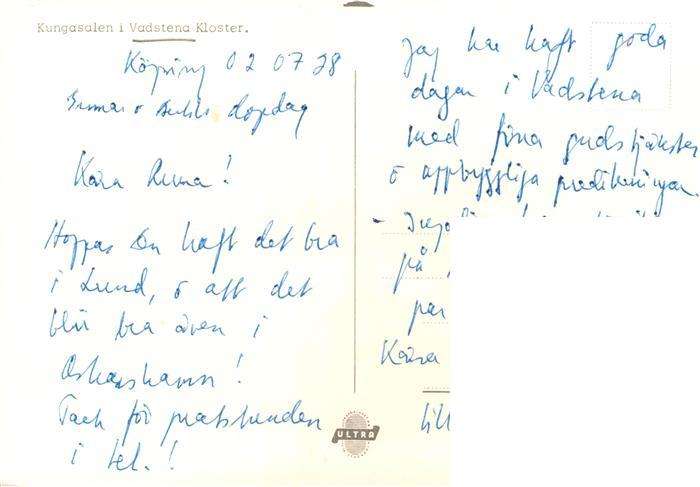 Kungasalen i Vadstena Kloster.
Köping 02 07 28
dopdag
Kära Runa!
Hoppas Du haft det bra
i Lund, o att det
blir bra även i
Oskarshamn!
Tack för pratstunden
i tel.!
ULTRA
Jag har haft goda
dagar i Vadstena
med fina gudstjänster
o uppbyggliga predikningar
på
Kära
till